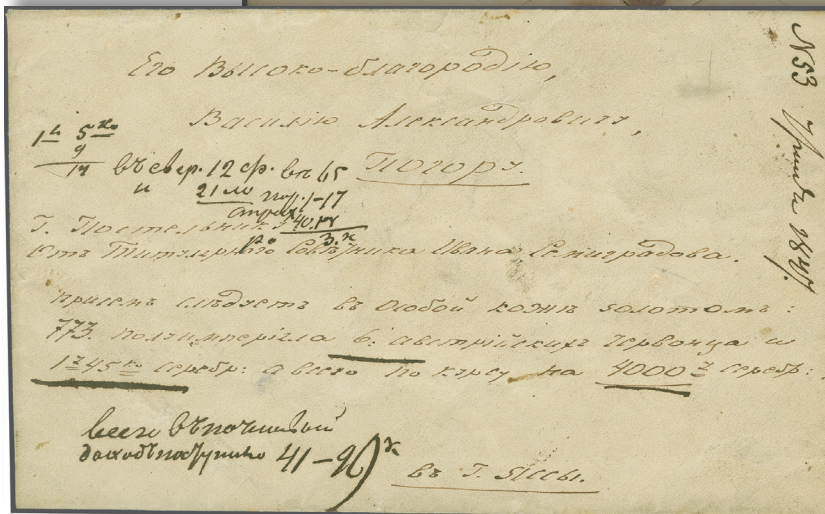 Его Высоко-благородію,
Василію Александровичу,
Погору.
1 5 ко
9
14
въ сер. 12 ср. въ 65
и 21 ло
1-17
40.
3. к
Г. Постельнику
Отъ Титулярнаго Совѣтника Ивана Семиградова.
При семъ слѣдуетъ въ особой кожѣ золотомъ:
773. полуимперіала 6: австрійскихъ червонца и
1 р 45 ко серебр: а всего по курсу на 4000 р серебр:
всего въ почтовой
доходъ поступило 41-90 к
въ г. Яссы.
N53
1847.